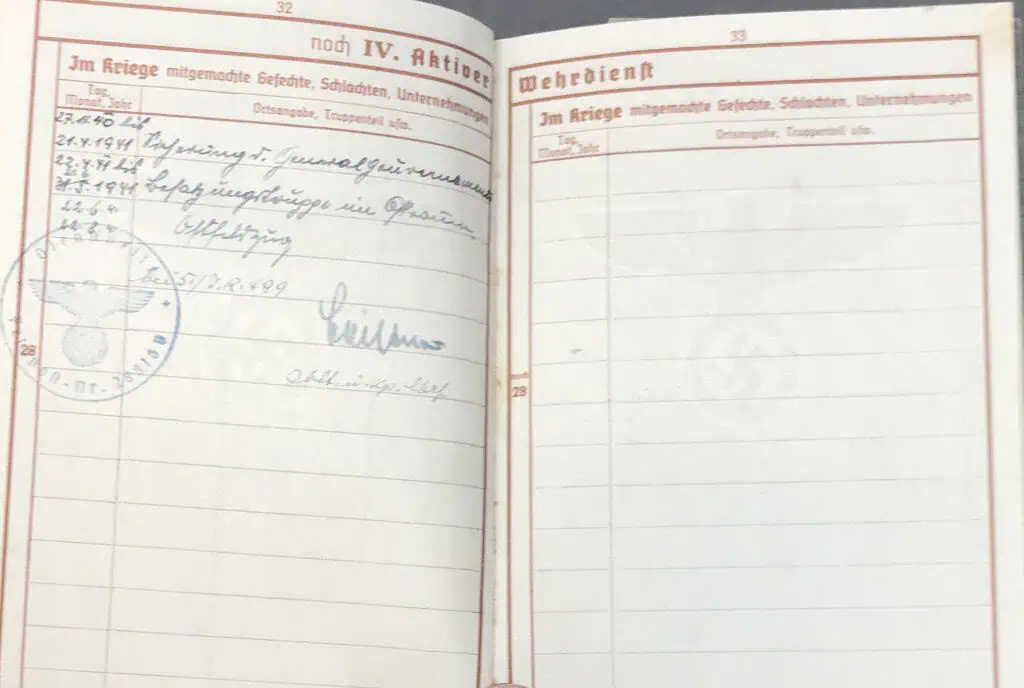 32
noch IV. Aktiver
Im Kriege mitgemachte Gefechte, Schlachten, Unternehmungen
Tag, Monat, Jahr
Ortsangabe, Truppenteil usw.
bis
21.4.1941 Sicherung d. Generalgouvernements
22.4.41 bis
1941 Besatzungstruppe im
22.6.41
Ostfeldzug
bei 5./J.R. 499
Oblt. u. Kp. Chef
Dienststelle
28
33
Wehrdienst
Im Kriege mitgemachte Gefechte, Schlachten, Unternehmungen
Tag, Monat, Jahr
Ortsangabe, Truppenteil usw.
noch
28